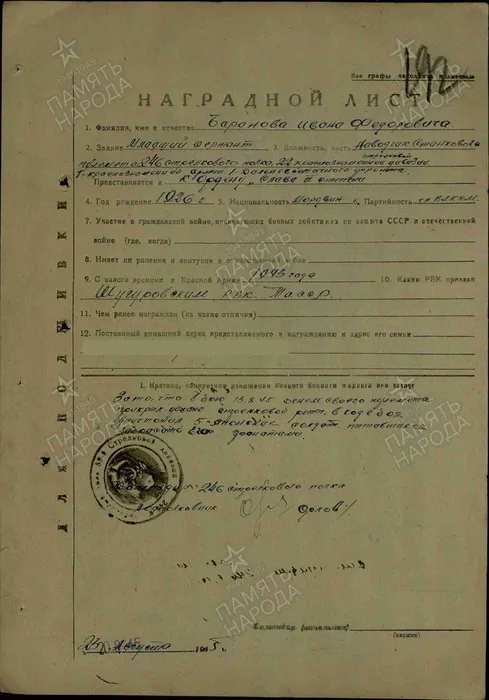 Все графы заполнять полностью
192
НАГРАДНОЙ ЛИСТ
1. Фамилия, имя и отчество Баранова Ивана Федоровича
2. Звание Младший сержант 3. Должность, часть Наводчик станкового
пулемета 246 стрелкового полка, 22 краснознаменной дивизии,
стрелковой
1-краснознаменной армии 1-Дальневосточного фронта
Представляется к Ордену „Слава III степени
4. Год рождения 1926 г 5. Национальность Мордвин 6. Партийность чл ВЛКСМ
7. Участие в гражданской войне, последующих боевых действиях по защите СССР и отечественной
войне (где, когда)
8. Имеет ли ранения и контузии в отечественной войне
9. С какого времени в Красной Армии с 1943 года 10. Каким РВК призван
Шугуровским РВК ТАССР.
11. Чем ранее награжден (за какие отличия)
12. Постоянный домашний адрес представляемого к награждению и адрес его семьи
1. Краткое, конкретное изложение личного боевого подвига или заслуг
За то, что в бою 13.8.45 огнем своего пулемета
прикрыл стрелковой роты, в ходе боя
5-японских солдат, пытавшихся
забросать его гранатами.
246 стрелкового полка
Подполковник Орлов
Командир (начальник)
(подпись)
25 Августа 1945 г.
ПАМЯТЬ
НАРОДА
1941-1945